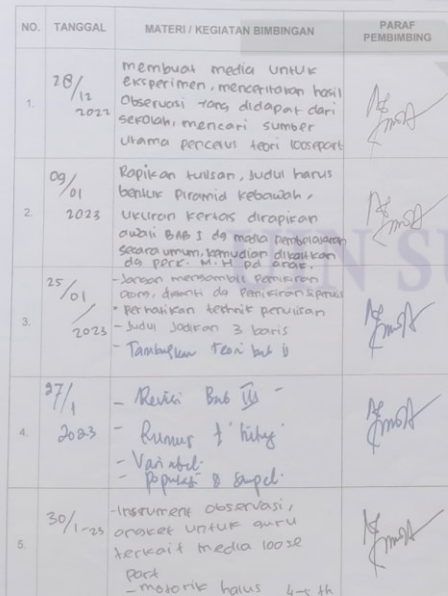 NO. TANGGAL MATERI / KEGIATAN BIMBINGAN PARAF PEMBIMBING
1. 28/12 2022
membuat media untuk
eksperimen, menceritakan hasil
Observasi yang didapat dari
sekolah, mencari sumber
utama pencetus teori loosepart
2. 09/01 2023
Rapikan tulisan, Judul harus
bentuk Piramid kebawah,
ukuran kertas dirapikan
awali BAB I dg media pembelajaran
secara umum, kemudian dikaitkan
dg perk. M.H pd anak.
3. 25/01/2023
- Jangan mengambil Pemikiran
orang, diganti dg Pemikiran
• Perhatikan tekhnik penulisan
- Judul Jadikan 3 baris
- Tambahkan teori bab
4. 27/1 2023
- Revisi Bab III -
- Rumus t hitung
- Variabel.
- Populasi & sampel.
5. 30/1-23
- Instrument observasi,
angket untuk guru
terkait media loose
part
- motorik halus 4-5 th